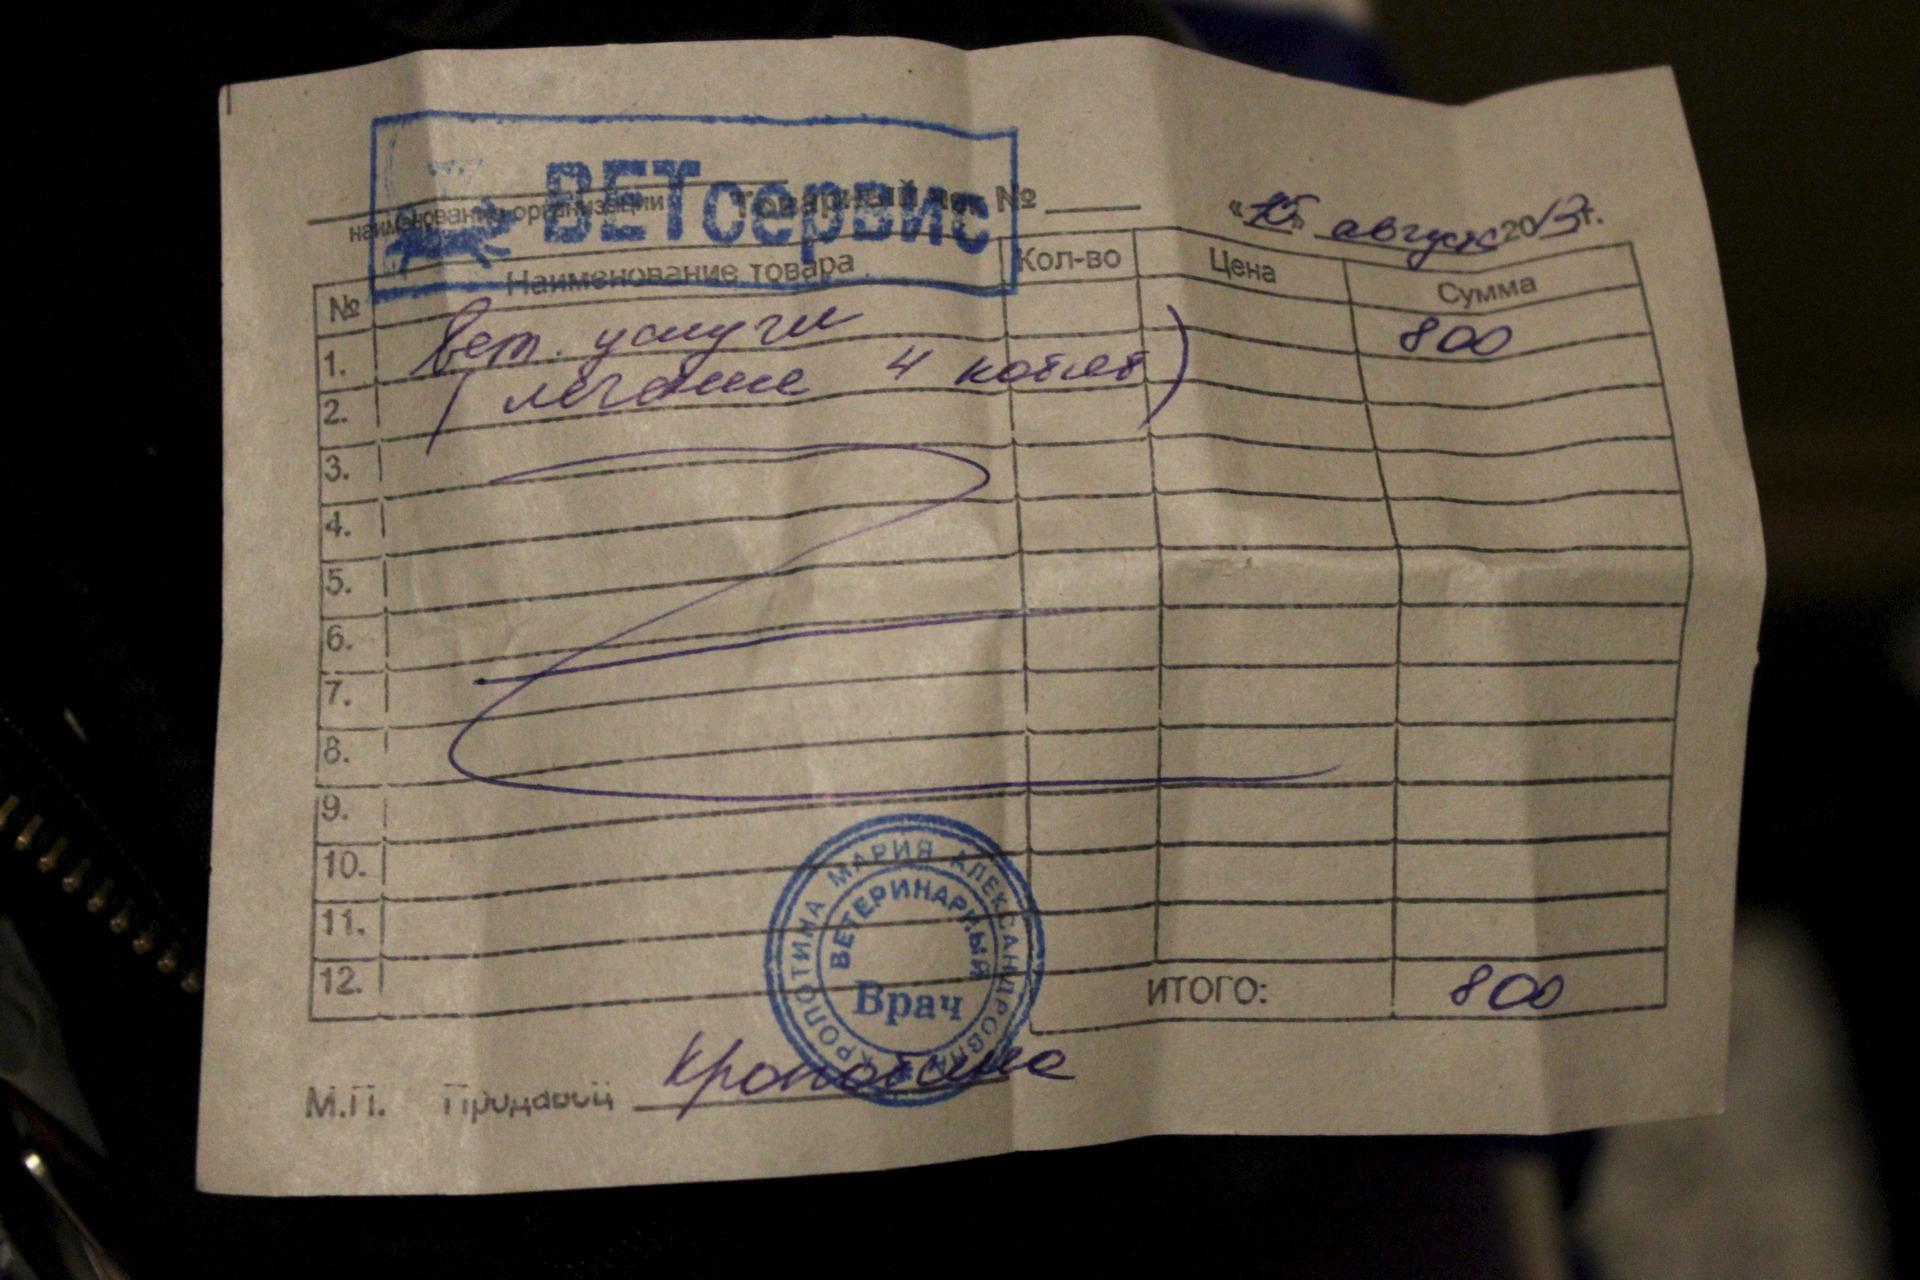 ВЕТсервис
наименование организации Товарный чек № «15» августа 2013г.
№ Наименование товара Кол-во Цена Сумма
1. Вет. услуги 800
2. (лечение 4 котят)
3.
4.
5.
6.
7.
8.
9.
10.
11.
12.
ИТОГО: 800
КРОПОТИНА МАРИЯ АЛЕКСАНДРОВНА
ВЕТЕРИНАРНЫЙ
Врач
М.П. Продавец Кропотина